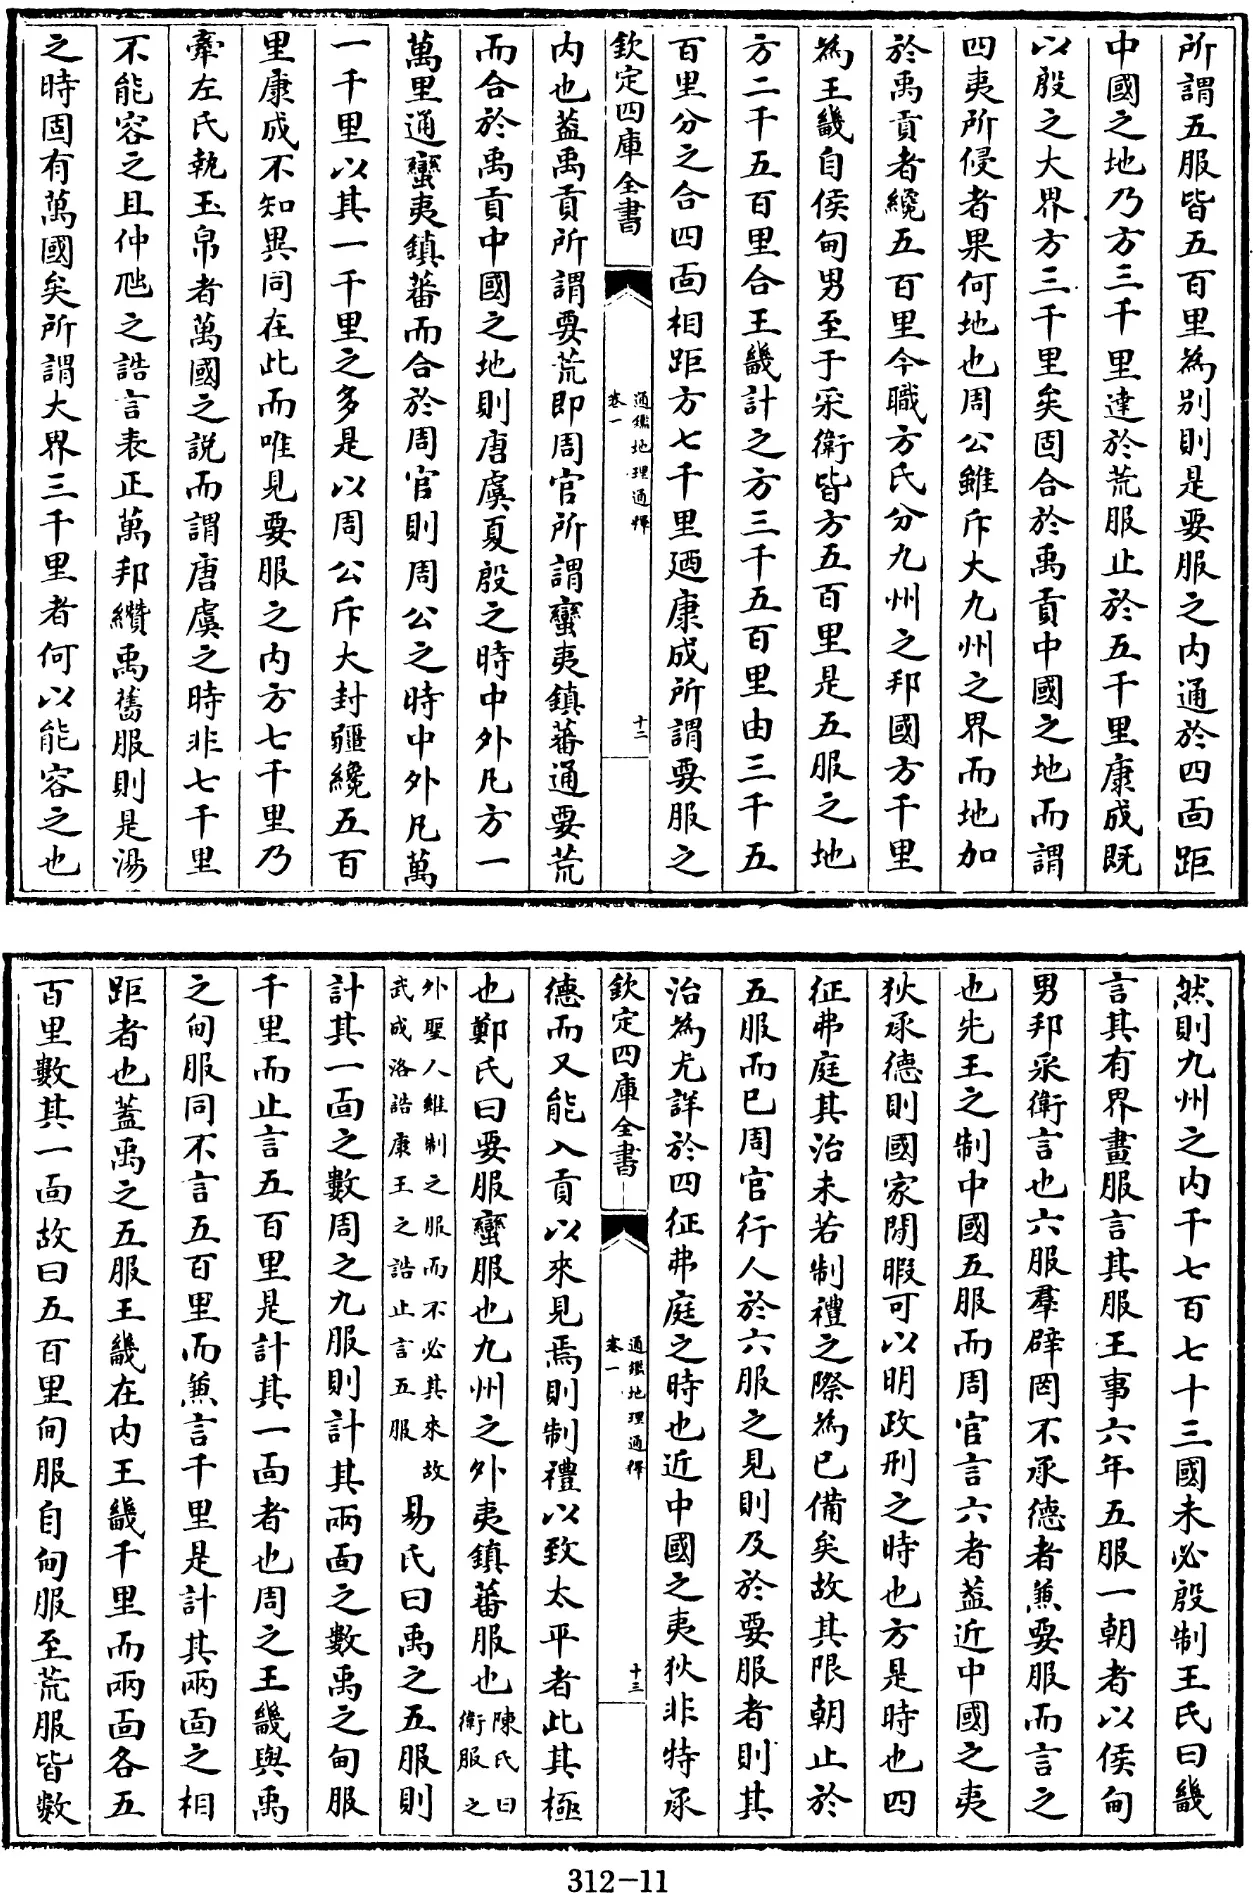 所謂五服皆五百里為别則是要服之内通於四面距
中國之地乃方三千里達於荒服止於五千里康成既
以殷之大界方三千里矣固合於禹貢中國之地而謂
四夷所侵者果何地也周公雖斥大九州之界而地加
於禹貢者纔五百里今職方氏分九州之邦國方千里
為王畿自侯甸男至于采衛皆方五百里是五服之地
方二千五百里合王畿計之方三千五百里由三千五
百里分之合四面相距方七千里廼康成所謂要服之
欽定四庫全書
通鑑地理通釋
卷一
十二
内也葢禹貢所謂要荒即周官所謂蠻夷鎮蕃通要荒
而合於禹貢中國之地則唐虞夏殷之時中外凡方一
萬里通蠻夷鎮蕃而合於周官則周公之時中外凡萬
一千里以其一千里之多是以周公斥大封疆纔五百
里康成不知異同在此而唯見要服之内方七千里乃
牽左氏執玉帛者萬國之説而謂唐虞之時非七千里
不能容之且仲虺之誥言表正萬邦纘禹舊服則是湯
之時固有萬國矣所謂大界三千里者何以能容之也
然則九州之内千七百七十三國未必殷制王氏曰畿
言其有界畫服言其服王事六年五服一朝者以侯甸
男邦采衛言也六服羣辟罔不承德者兼要服而言之
也先王之制中國五服而周官言六者葢近中國之夷
狄承德則國家閒暇可以明政刑之時也方是時也四
征弗庭其治未若制禮之際為已備矣故其限朝止於
五服而已周官行人於六服之見則及於要服者則其
治為尤詳於四征弗庭之時也近中國之夷狄非特承
欽定四庫全書
通鑑地理通釋
卷一
十三
德而又能入貢以來見焉則制禮以致太平者此其極
也鄭氏曰要服蠻服也九州之外夷鎮蕃服也陳氏曰衛服之
外聖人雖制之服而不必其來故武成洛誥康王之誥止言五服易氏曰禹之五服則
計其一面之數周之九服則計其兩面之數禹之甸服
千里而止言五百里是計其一面者也周之王畿與禹
之甸服同不言五百里而兼言千里是計其兩面之相
距者也葢禹之五服王畿在内王畿千里而兩面各五
百里數其一面故曰五百里甸服自甸服至荒服皆數
312-11